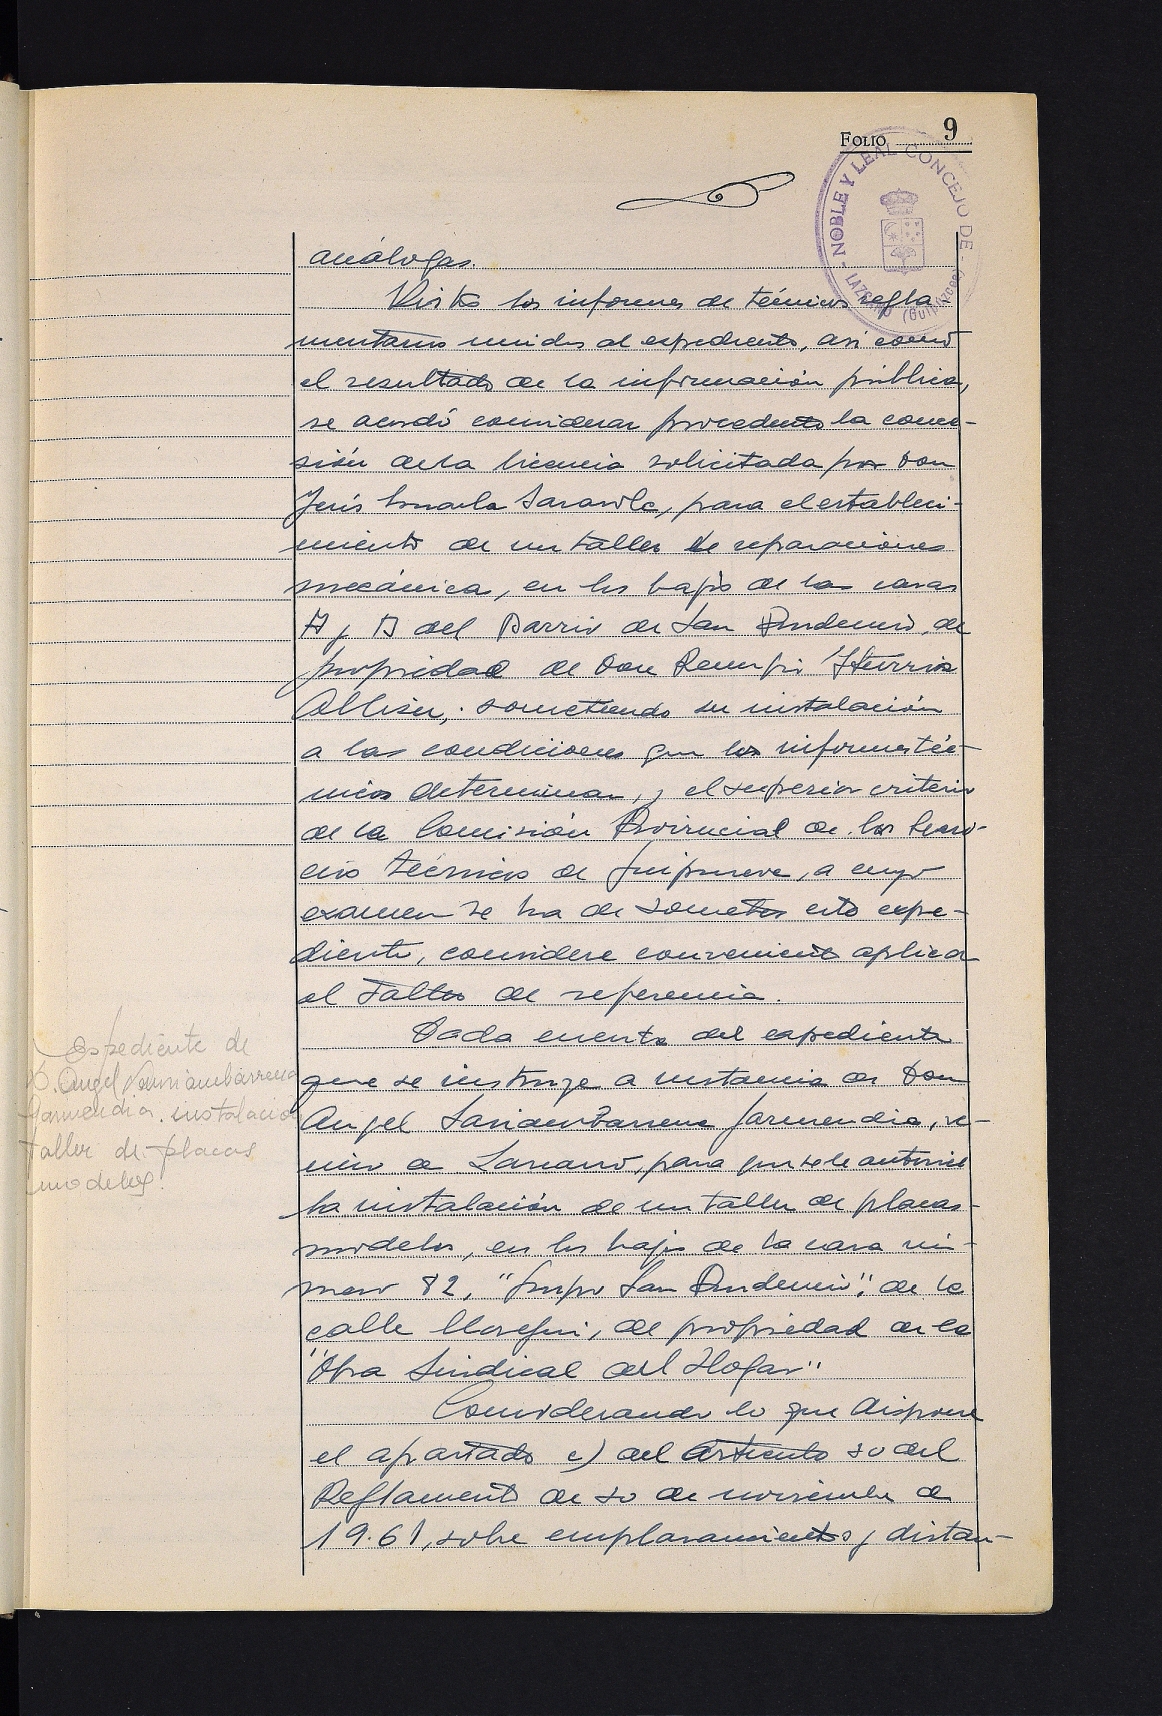 FOLIO 9
NOBLE Y LEAL CONCEJO DE
LAZCANO (Guipúzcoa)
análogas.
Vistos los informes de técnicos regla
mentarios unidos al expediente, asi como
el resultado de la información pública,
se acordó considerar procedente la conce-
sión de la licencia solicitada por Don
Jesús para el estableci-
miento de un taller de reparaciones
mecánica, en los bajos de las casas
A y B del Barrio de San Prudencio, de
propiedad de Don Remigio Iturrioz
sometiendo su instalación
a las condiciones que los informes téc-
nicos determinan, y el superior criterio
de la Comisión Provincial de los Servi-
cios Técnicos de Guipuzcoa, a cuyo
examen se ha de someter este expe-
diente, considere conveniente aplicar
al de referencia.
Dada cuenta del expediente
que se instruye a instancia de Don
Angel Garmendia, ve-
cino de Lazcano, para que se le autorice
la instalación de un taller de placas-
modelos, en los bajos de la casa nú-
mero 82, "Grupo San Prudencio", de la
calle de propiedad de la
"Obra Sindical del Hogar"
Considerando lo que dispone
el apartado c) del Artículo 30 del
Reglamento de 30 de noviembre de
1961, sobre emplazamientos y distan-
Expediente de
D. Angel
Garmendia. instalación
taller de placas
modelos.